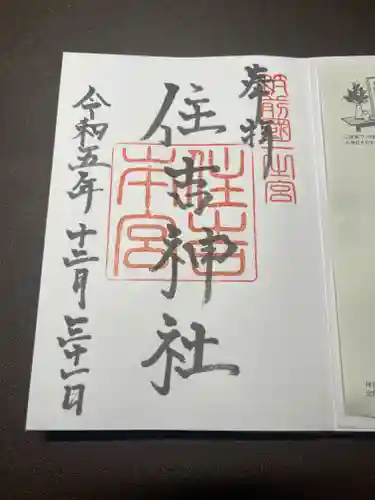 奉拝
筑前國一之宮
住吉神社
住吉本宮
令和五年 十二月 三十一日